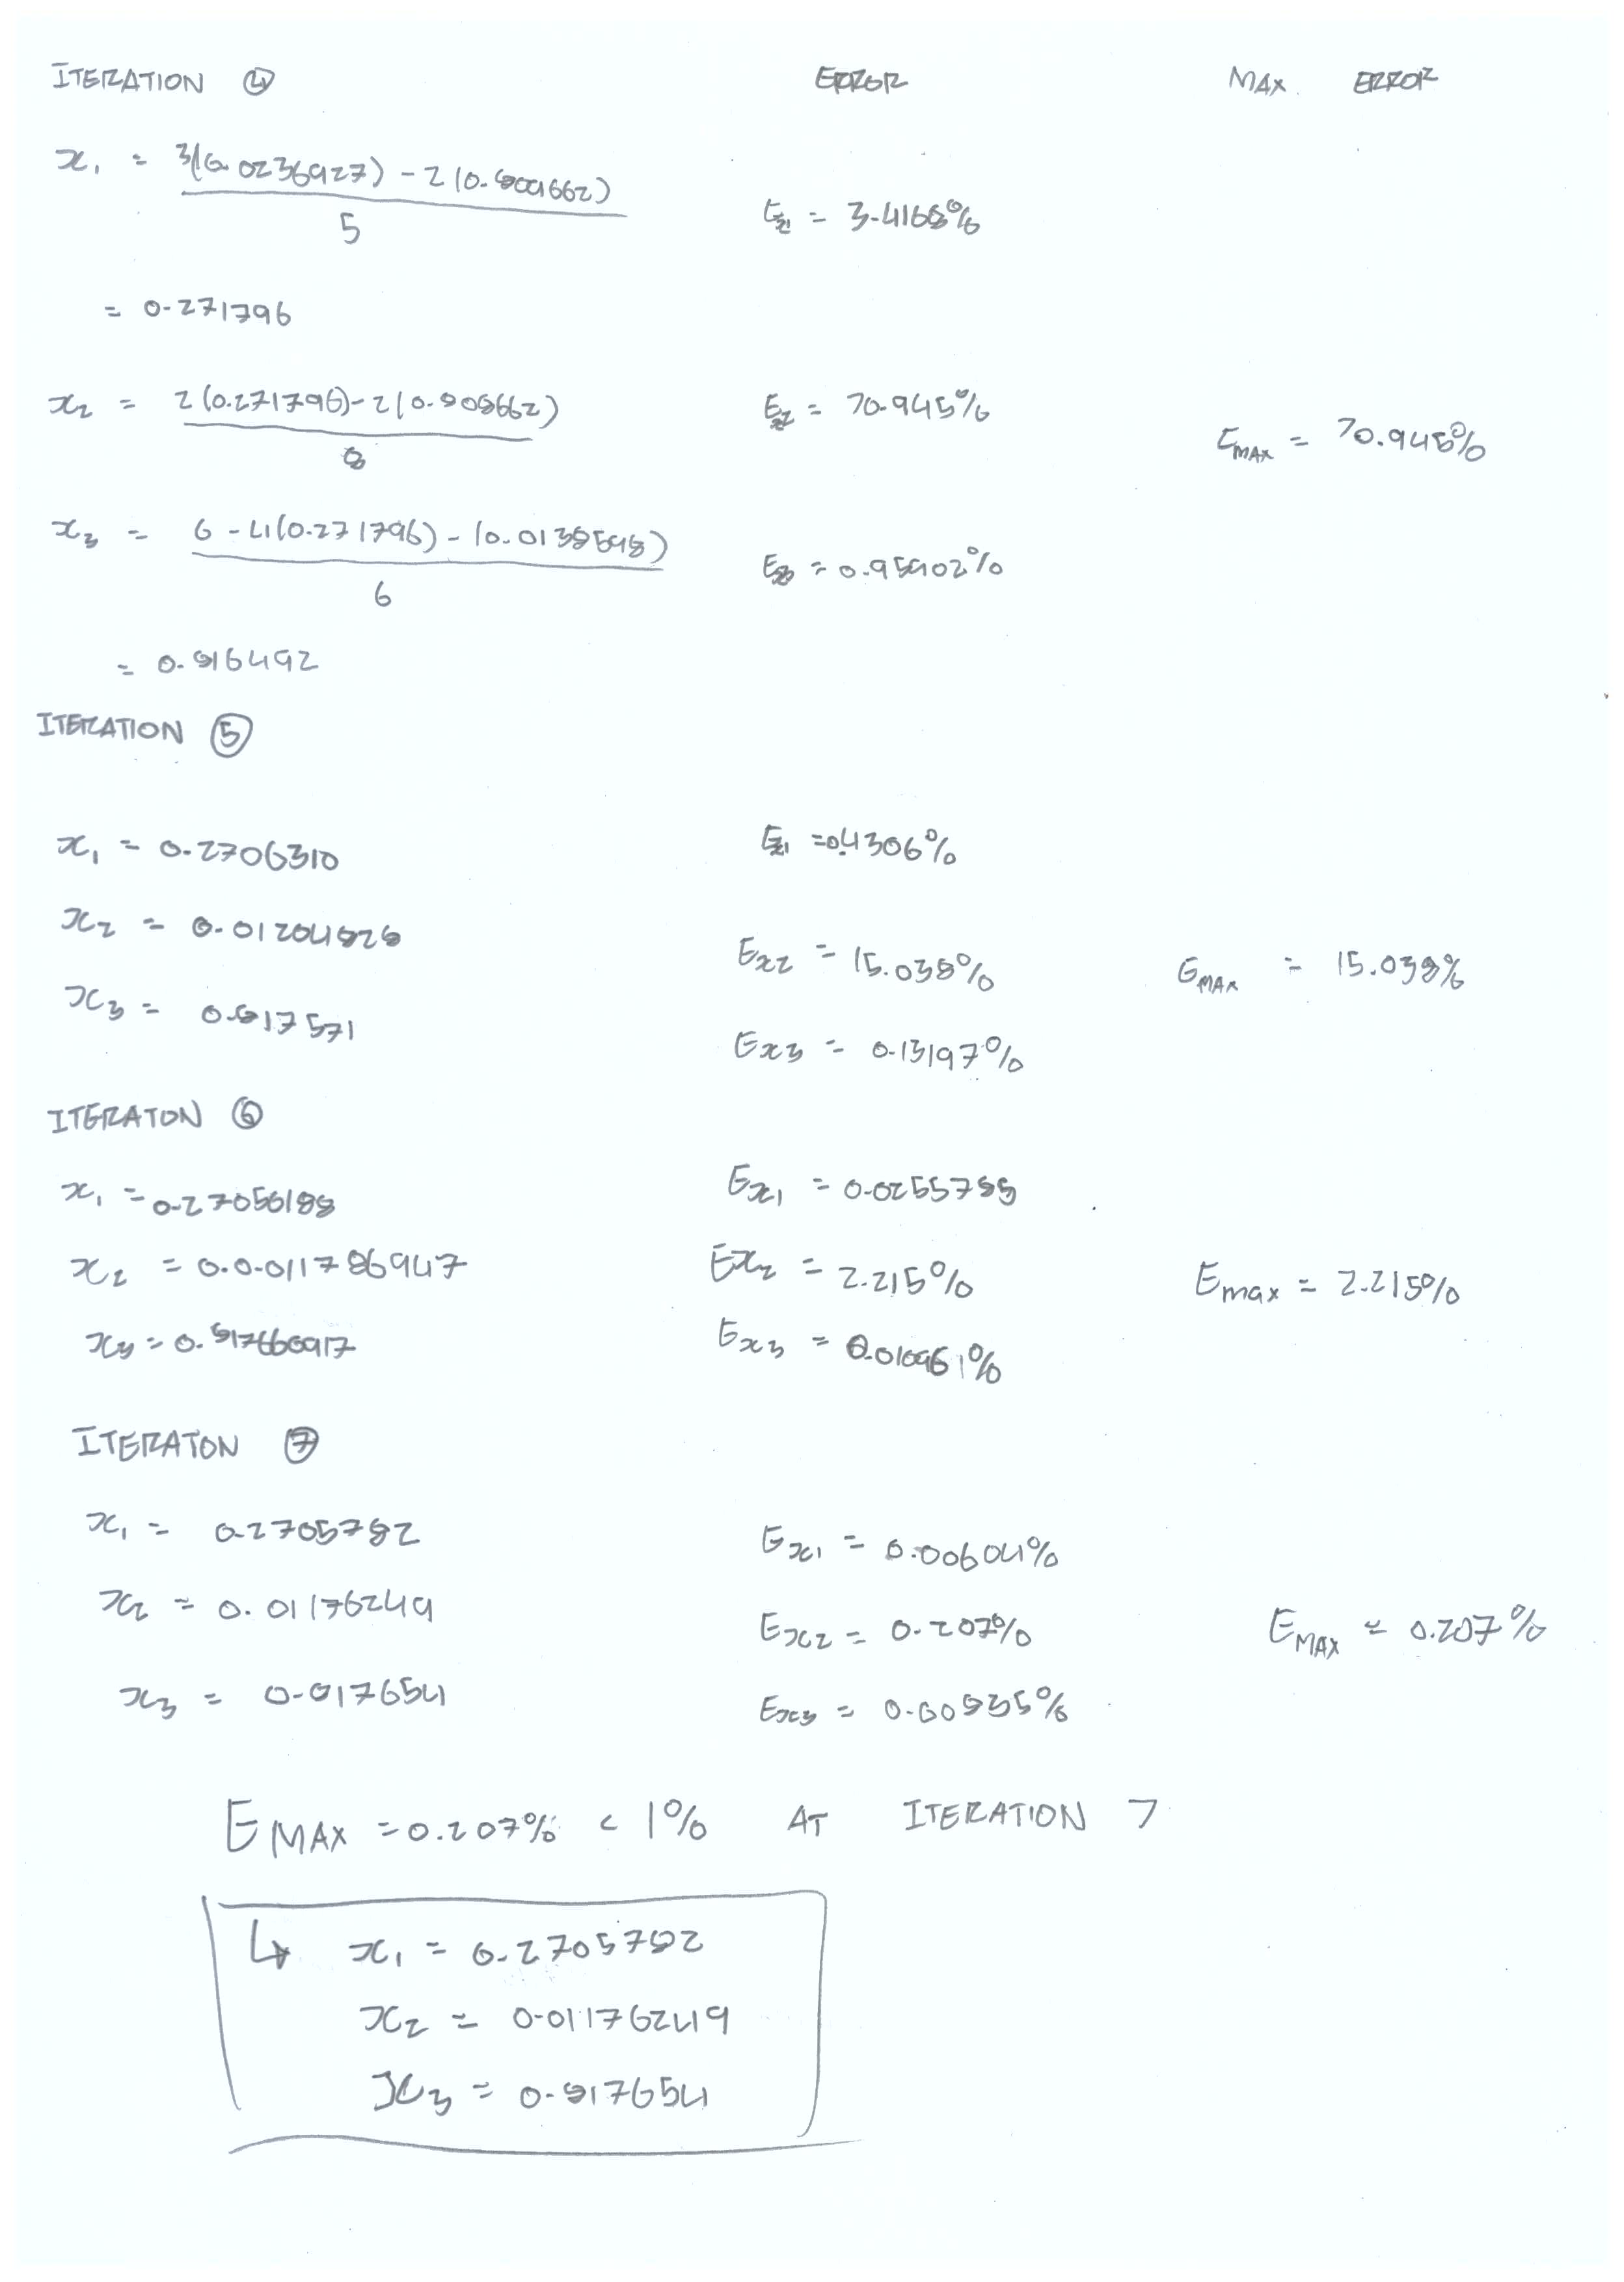 ITERATION ④ ERROR MAX. ERROR
x₁ = 3(0.0236927) - 2(0.808662) / 5 Ex1 = 3.4168%
= 0.271796
x₂ = 2(0.271796) - 2(0.808662) / 8 Ex2 = 70.945% EMAX = 70.945%
x₃ = 6 - 4(0.271796) - (0.0138598) / 6 Ex3 = 0.95902%
= 0.816492
ITERATION ⑤
x₁ = 0.2706310 Ex1 = 0.4306%
x₂ = 0.01204828 Ex2 = 15.038% EMAX = 15.038%
x₃ = 0.817571 Ex3 = 0.13197%
ITERATON ⑥
x₁ = 0.27056188 Ex1 = 0.0255788
x₂ = 0.0.011786947 Ex2 = 2.215% Emax = 2.215%
x₃ = 0.817660917 Ex3 = 0.010961%
ITERATON ⑦
x₁ = 0.2705782 Ex1 = 0.00604%
x₂ = 0.01176249 Ex2 = 0.207% EMAX = 0.207%
x₃ = 0.817654 Ex3 = 0.00835%
EMAX = 0.207% < 1% AT ITERATION 7
↳ x₁ = 0.2705782
x₂ = 0.01176249
x₃ = 0.817654